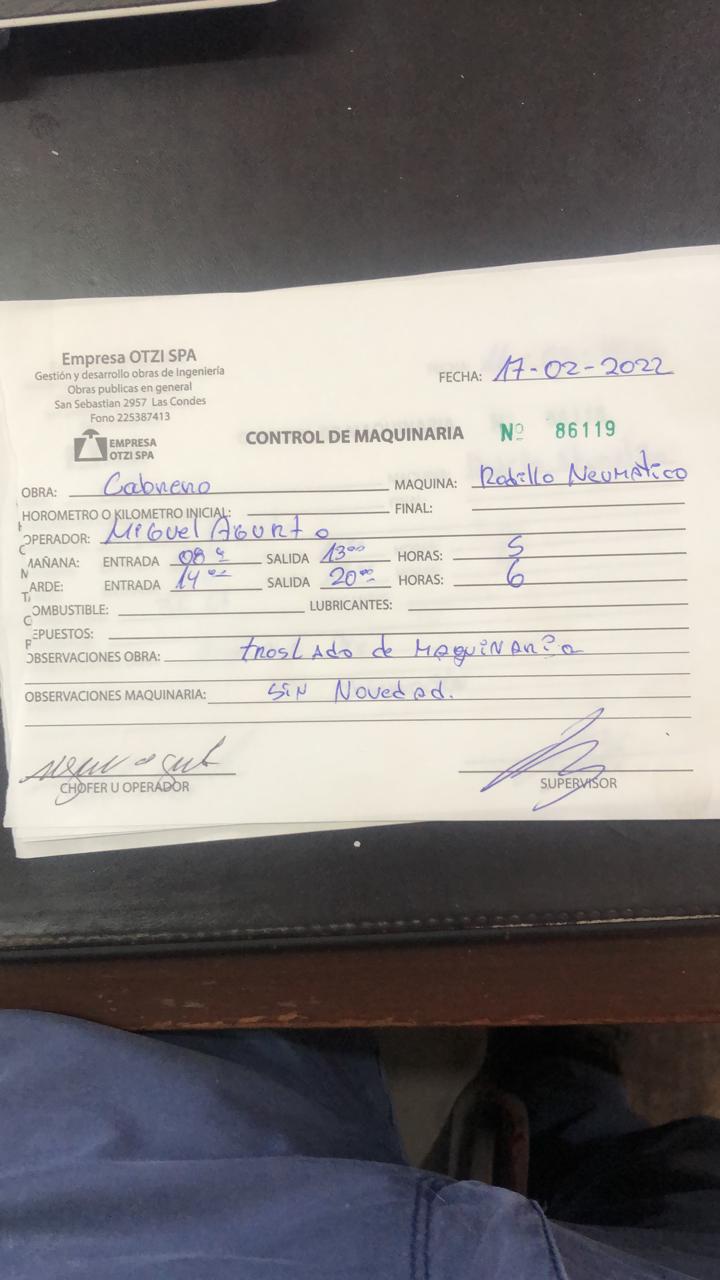 Empresa OTZI SPA
Gestión y desarrollo obras de Ingeniería
Obras publicas en general
San Sebastian 2957 Las Condes
Fono 225387413
EMPRESA
OTZI SPA
FECHA: 17-02-2022
CONTROL DE MAQUINARIA Nº 86119
OBRA: Cabrero MAQUINA: Rodillo Neumático
HOROMETRO O KILOMETRO INICIAL: FINAL:
OPERADOR: Miguel Agurto
MAÑANA: ENTRADA 08 SALIDA 13⁰⁰ HORAS: 5
TARDE: ENTRADA 14⁰⁰ SALIDA 20⁰⁰ HORAS: 6
COMBUSTIBLE: LUBRICANTES:
REPUESTOS:
OBSERVACIONES OBRA: traslado de Maquinaria
OBSERVACIONES MAQUINARIA: Sin Novedad.
CHOFER U OPERADOR SUPERVISOR